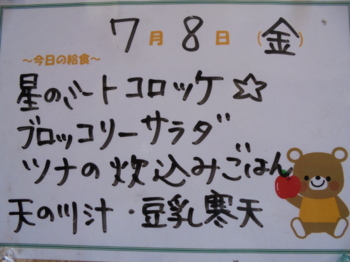 7月8日(金)
～今日の給食～
星のハートコロッケ☆
ブロッコリーサラダ
ツナの炊込みごはん
天の川汁・豆乳寒天